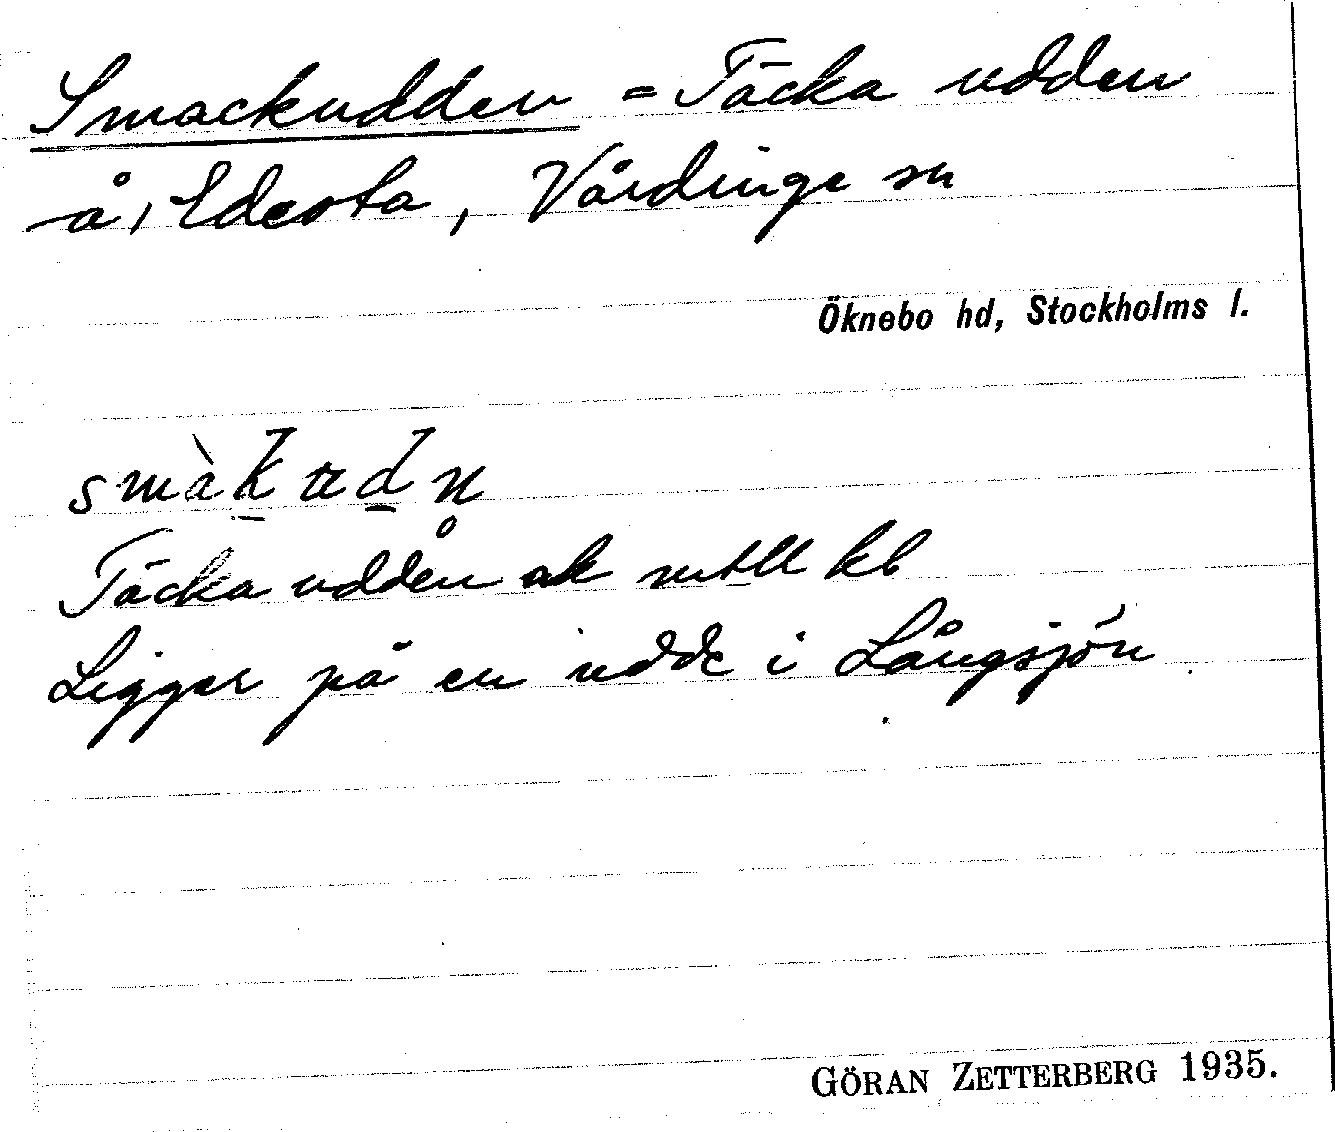 Smackudden = Täcka udden
å, Edesta, Vårdinge sn
Öknebo hd, Stockholms l.
smàkudn
Täcka udden ak
Ligger på en udde i Långsjön
GÖRAN ZETTERBERG 1935.